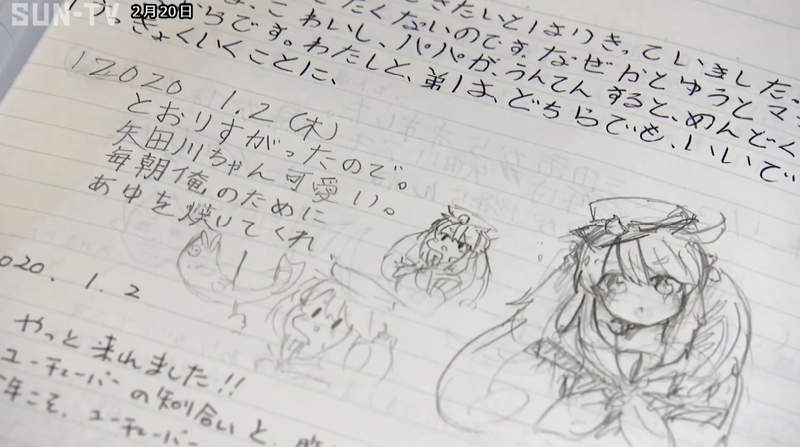 SUN-TV
2月20日
きたいとはりきっていました
たくないのです。なぜかとゆうとマ
こわいし、パパが、うんてんすると、めんどく
らです。わたしと、弟は、どちらでも、いいで
っきょくいくことに、
12020 1.2(木)
とおりすがったので。
矢田川ちゃん可愛い。
毎朝俺のために
あゆを焼いてくれ
2020.1.2
やっと来れました!!
ユーチューバーの知り合いと、
年こそ、ユーチューバー